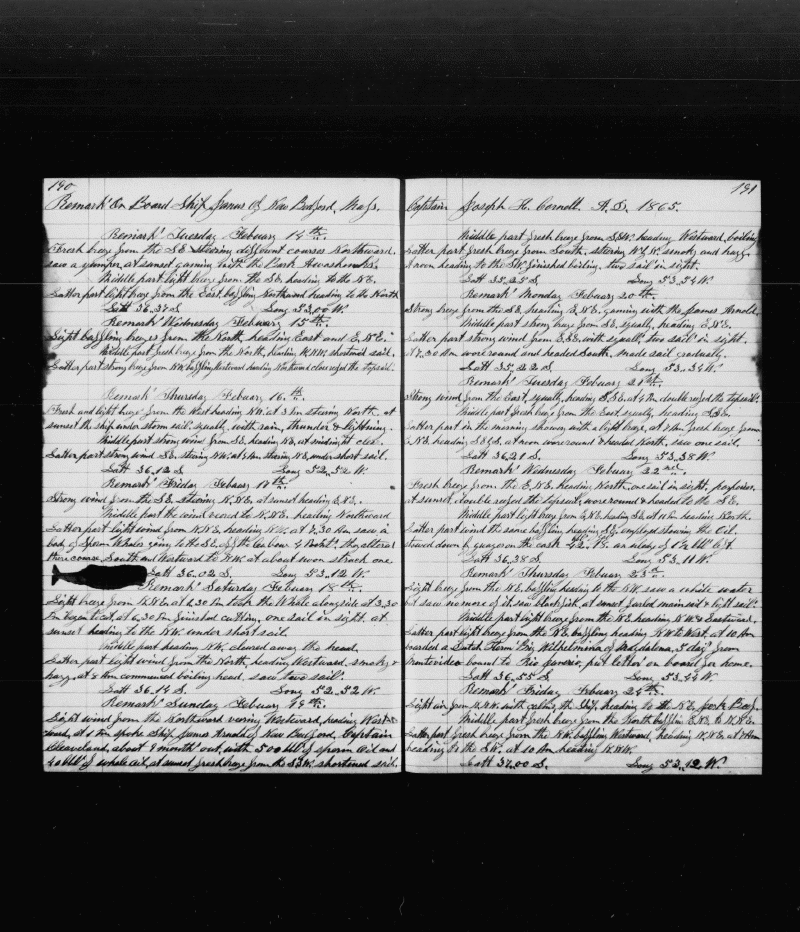 190
Remark's On Board Ship James Of New Bedford, Mass.
Remark's Tuesday Febuary 14th.
Fresh breeze from the S.E. steering different courses Northward.
saw a jumper, at sunset gaming with the Bark Awashonks.
Middle part light breeze from the S.E. heading to the N.E.
Latter part light breeze from the East, baffling Northward heading to the North
Latt 36.37 S. Long 53.00 W.
Remark's Wednesday Febuary 15th.
Light baffling breezes from the North, heading East and E.N.E.
Middle part fresh breeze from the North, heading W.N.W. shortened sail.
Latter part strong breeze from N.W. baffling Westward heading Northward close reefed the topsail.
Remark's Thursday Febuary 16th.
Fresh and light breeze from the West heading N.W. at 3 Pm steering North. at
sunset the ship under storm sail. squally with rain, thunder & lightning.
Middle part strong wind from S.E. heading N.E. at midnight
Latter part strong wind S.E. steering N.W. at steering N.E. under short sail.
Latt 36.12 S. Long 52.52 W.
Remark's Friday Febuary 17th.
Strong wind from the S.E. steering N.N.E. at sunset heading E.N.E.
Middle part the wind veered to N.N.E. heading Northward
Latter part light wind from N.N.E. heading N.W. at 7.30 Am saw a
body of Sperm Whales going to the S.E. off the lee bow & Boat's they altered
there course South and Westward to N.W. at about noon struck one.
Latt 36.02 S. Long 53.12 W.
Remark's Saturday Febuary 18th.
Light breeze from N.N.E. at 1.30 Pm took the Whale alongside at 3.30
Pm began to cut, at 6.30 Pm finished cutting, one sail in sight. at
sunset heading to the N.W. under short sail.
Middle part heading N.W. cleared away the head.
Latter part light wind from the North, heading Westward. smoky &
hazy. at 8 Am commenced boiling head, saw two sail's.
Latt 36.14 S. Long 52.52 W.
Remark's Sunday Febuary 19th.
Light wind from the Northward veering Westward, heading West-
ward, at 1 Pm spoke Ship James Arnold of New Bedford, Captain
Cleaveland, about 9 month's out, with 500 bbl's of sperm oil and
40 bbl's of whale oil, at sunset fresh breeze from the SSW. shortened sail.
191
Captain Joseph H. Cornell. A.D. 1865.
Middle part fresh breeze from S.S.W. heading Westward, boiling
Latter part fresh breeze from South, steering W.S.W. smoky and hazy.
at noon heading to the S.W. finished boiling, two sail in sight.
Latt 35.25 S. Long 53.54 W.
Remark's Monday Febuary 20th.
Strong breeze from the S.E. heading E.N.E. gaming with the James Arnold.
Middle part strong breeze from S.E. squally, heading E.N.E.
Latter part strong wind from E.S.E. with squally, two sail in sight.
at 7.30 Am wore round and headed South. made sail gradually.
Latt 35.22 S. Long 53.34 W.
Remark's Tuesday Febuary 21st.
Strong wind from the East, squally, heading S.S.E. at 4 Pm double reefed the topsail's.
Middle part fresh breeze from the East, squally, heading S.S.E.
Latter part in the morning shower, with a light breeze, at 8 Am fresh breeze from
E.N.E. heading S.E.S. at noon wore round & headed North, saw one sail.
Latt 36.21 S. Long 53.38 W.
Remark's Wednesday Febuary 22nd.
Fresh breeze from the E.N.E. heading North, one sail in sight, porpoises.
at sunset, double reefed the topsail, wore round & headed to the S.E.
Middle part light breeze from E.N.E. heading S.E. at 11 Pm heading North.
Latter part wind the same baffling heading S.E. employed stowing the Oil.
stowed down by guage on the cask 42.18.
Latt 36.38 S. Long 53.11 W.
Remark's Thursday Febuary 23d.
Light breeze from the N.E. baffling heading to the N.W. saw a white water
but saw no more of it. saw blackfish, at sunset furled mainsail & light sail's.
Middle part light breeze from the N.E. heading N.W. & Eastward.
Latter part light breeze from the N.E. baffling heading N.W. to West. at 10 Am
boarded a Dutch Herm Brig Wilhelmena of Magdalena, 5 day's from
Montevideo bound to Rio Janerio, put letter's on board for home.
Latt 36.55 S. Long 53.44 W.
Remark's Friday Febuary 24th.
Light air from N.N.W. with calms, the Ship heading to the N.E.
Middle part fresh breeze from the North baffling E.N.E. to N.N.E.
Latter part fresh breeze from the N.W. baffling Westward, heading N.N.E. at 8 Am
heading to the S.W. at 10 Am heading W.N.W.
Latt 37.00 S. Long 53.12 W.